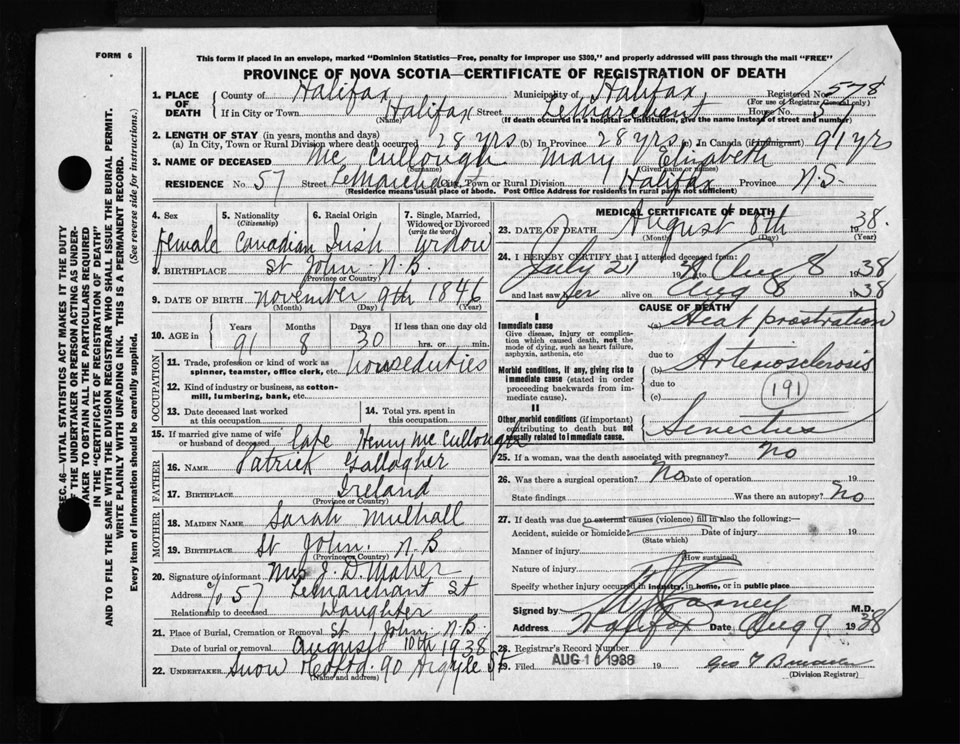 FORM 6
This form if placed in an envelope, marked "Dominion Statistics—Free, penalty for improper use $300," and properly addressed will pass through the mail "FREE"
PROVINCE OF NOVA SCOTIA—CERTIFICATE OF REGISTRATION OF DEATH
1. PLACE OF DEATH County of Halifax Municipality of Halifax Registered No. 578
(For use of Registrar General only)
If in City or Town Halifax Street LeMarchant House No. 57
(Name) (If death occurred in a hospital or institution, give the name instead of street and number)
2. LENGTH OF STAY (in years, months and days)
(a) In City, Town or Rural Division where death occurred 28 yrs. (b) In Province 28 yrs (c) In Canada (if immigrant) 91 yrs
3. NAME OF DECEASED Mc Cullough Mary Elizabeth
(Surname) (Given name or names)
RESIDENCE No. 57 Street LeMarchant City, Town or Rural Division Halifax Province N.S.
(Residence means usual place of abode. Post Office Address for residents in rural parts not sufficient)
4. Sex 5. Nationality (Citizenship) 6. Racial Origin 7. Single, Married, Widowed or Divorced (write the word)
female Canadian Irish widow
8. BIRTHPLACE St John N.B.
(Province or Country)
9. DATE OF BIRTH November 9th 1846
(Month) (Day) (Year)
10. AGE in Years Months Days If less than one day old
91 8 30 hrs. or min.
OCCUPATION
11. Trade, profession or kind of work as spinner, teamster, office clerk, etc. houseduties
12. Kind of industry or business, as cotton-mill, lumbering, bank, etc.
13. Date deceased last worked at this occupation
14. Total yrs. spent in this occupation
15. If married give name of wife or husband of deceased late Henry Mc Cullough
FATHER
16. NAME Patrick Gallagher
17. BIRTHPLACE Ireland
(Province or Country)
MOTHER
18. MAIDEN NAME Sarah Mulhall
19. BIRTHPLACE St John. N.B
(Province or Country)
20. Signature of informant Mrs J. D. Maher
Address c/o 57 LeMarchant St
Relationship to deceased Daughter
21. Place of Burial, Cremation or Removal St John N.B.
Date of burial or removal August 10th 1938
22. UNDERTAKER Snow & Co Ltd. 90 Argyle St
(Name and address)
MEDICAL CERTIFICATE OF DEATH
23. DATE OF DEATH August 8th 1938.
(Month) (Day) (Year)
24. I HEREBY CERTIFY that I attended deceased from:
July 21 1938 to Aug 8 1938
and last saw her alive on Aug 8 1938
CAUSE OF DEATH
I
Immediate cause (a) Heat prostration
Give disease, injury or complication which caused death, not the mode of dying, such as heart failure, asphyxia, asthenia, etc
due to
Morbid conditions, if any, giving rise to immediate cause (stated in order proceeding backwards from immediate cause).
(b) Arteriosclerosis
due to
(c) 191
II
Other morbid conditions (if important) contributing to death but not causally related to immediate cause.
Senectus
25. If a woman, was the death associated with pregnancy? No
26. Was there a surgical operation? No Date of operation 19
State findings Was there an autopsy? No
27. If death was due to external causes (violence) fill in also the following:—
Accident, suicide or homicide? Date of injury 19
(State which)
Manner of injury
(How sustained)
Nature of injury
Specify whether injury occurred in industry, in home, or in public place
Signed by M.D.
Address Halifax Date Aug 9 1938
28. Registrar's Record Number
29. Filed AUG 10 1938 19
(Division Registrar)
SEC. 46—VITAL STATISTICS ACT MAKES IT THE DUTY
OF THE UNDERTAKER OR PERSON ACTING AS UNDER-
TAKER TO OBTAIN ALL THE PARTICULARS REQUIRED
IN THE "CERTIFICATE OF REGISTRATION OF DEATH"
AND TO FILE THE SAME WITH THE DIVISION REGISTRAR WHO SHALL ISSUE THE BURIAL PERMIT.
WRITE PLAINLY WITH UNFADING INK. THIS IS A PERMANENT RECORD.
Every item of information should be carefully supplied. (See reverse side for instructions.)